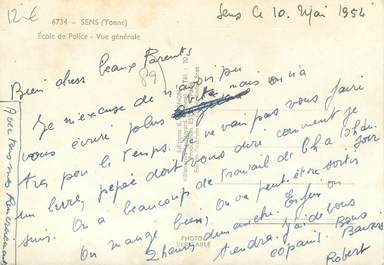 12€
6734 - SENS (Yonne)
École de Police - Vue générale
Sens le 10 Mai 1954
Bien chers beaux Parents
89
Je m'excuse de n'avoir pu
vous écrire plus vite mais on n'a
très peu le temps. Je vais pas vous faire
un livre, pépée doit vous dire comment je
suis. On a beaucoup de travail de 6h à 19h du soir
On mange bien, On va peut-être sortir
2 heures dimanche. Enfin on
tiendra. J'ai de bons
copains. Bons
Baisers
Robert
PHOTO
VÉRITABLE